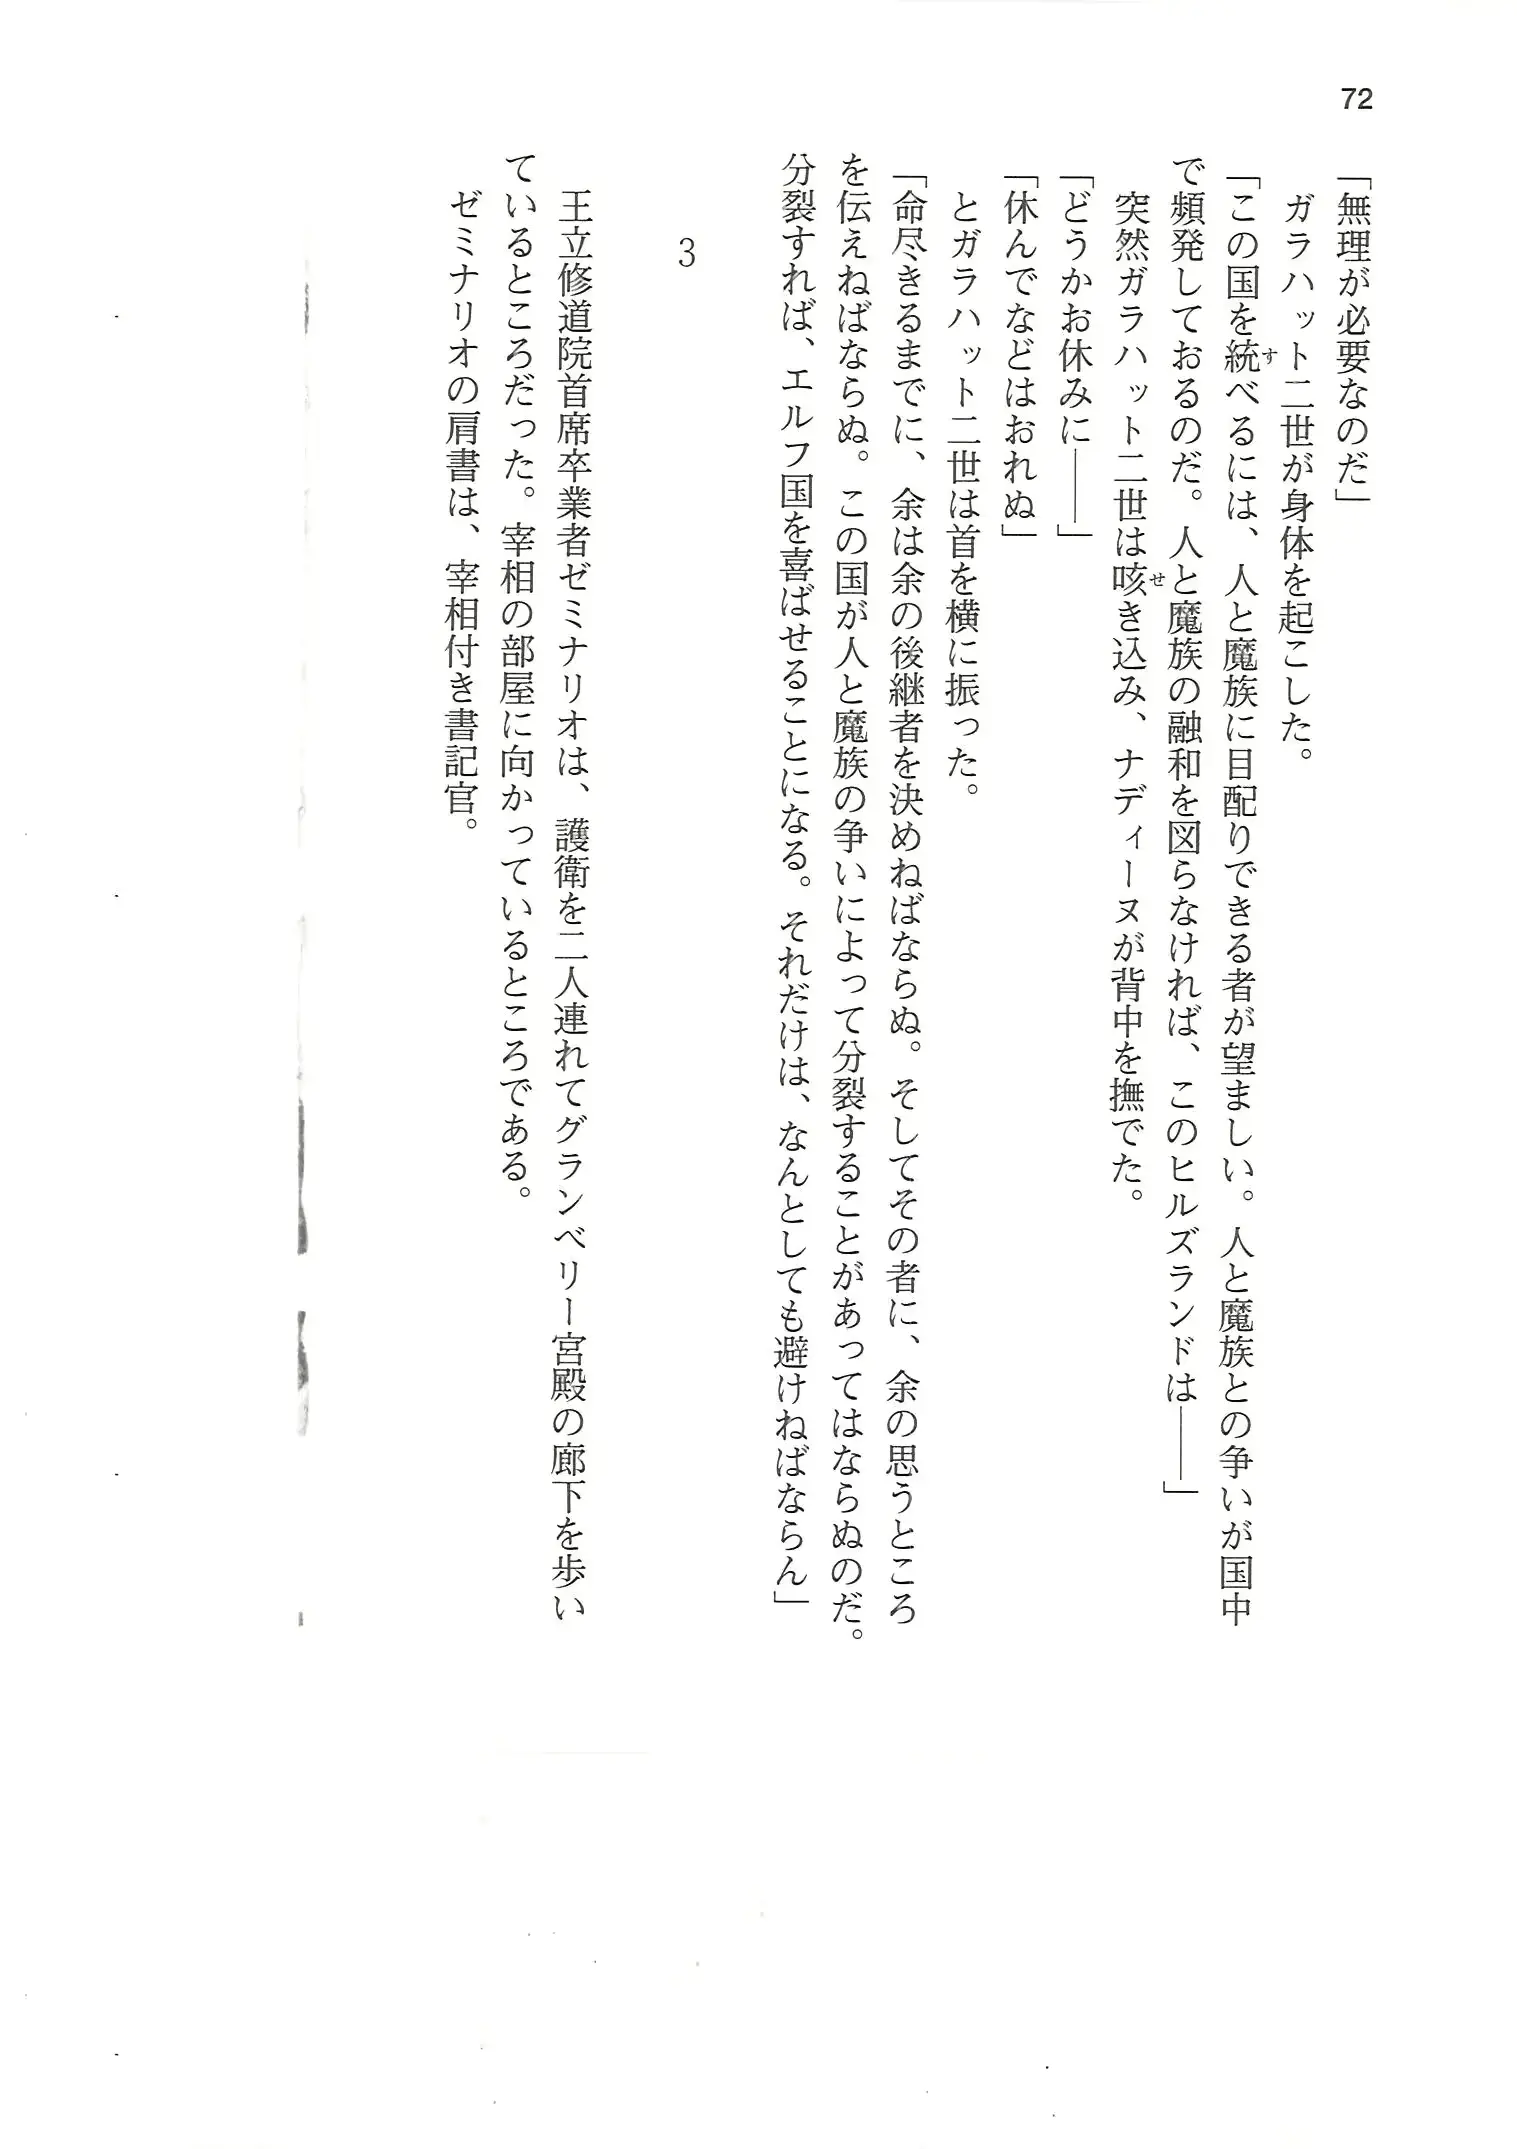 72
「無理が必要なのだ」
　ガラハット二世が身体を起こした。
「この国を統べるには、人と魔族に目配りできる者が望ましい。人と魔族との争いが国中
で頻発しておるのだ。人と魔族の融和を図らなければ、このヒルズランドは――」
　突然ガラハット二世は咳き込み、ナディーヌが背中を撫でた。
「どうかお休みに――」
「休んでなどはおれぬ」
　とガラハット二世は首を横に振った。
「命尽きるまでに、余は余の後継者を決めねばならぬ。そしてその者に、余の思うところ
を伝えねばならぬ。この国が人と魔族の争いによって分裂することがあってはならぬのだ。
分裂すれば、エルフ国を喜ばせることになる。それだけは、なんとしても避けねばならん」
3
　王立修道院首席卒業者ゼミナリオは、護衛を二人連れてグランベリー宮殿の廊下を歩い
ているところだった。宰相の部屋に向かっているところである。
　ゼミナリオの肩書は、宰相付き書記官。